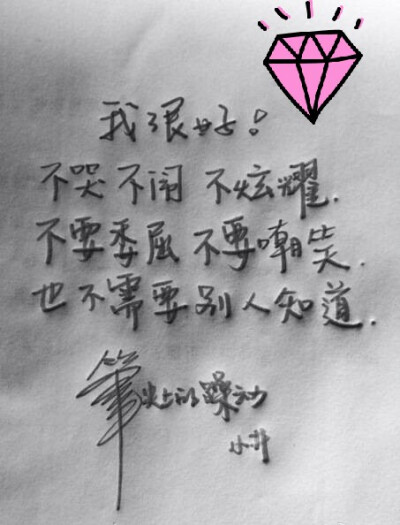 我很好!
不哭不闹 不炫耀.
不要委屈 不要嘲笑.
也不需要别人知道.
筆尖上的躁动
小井